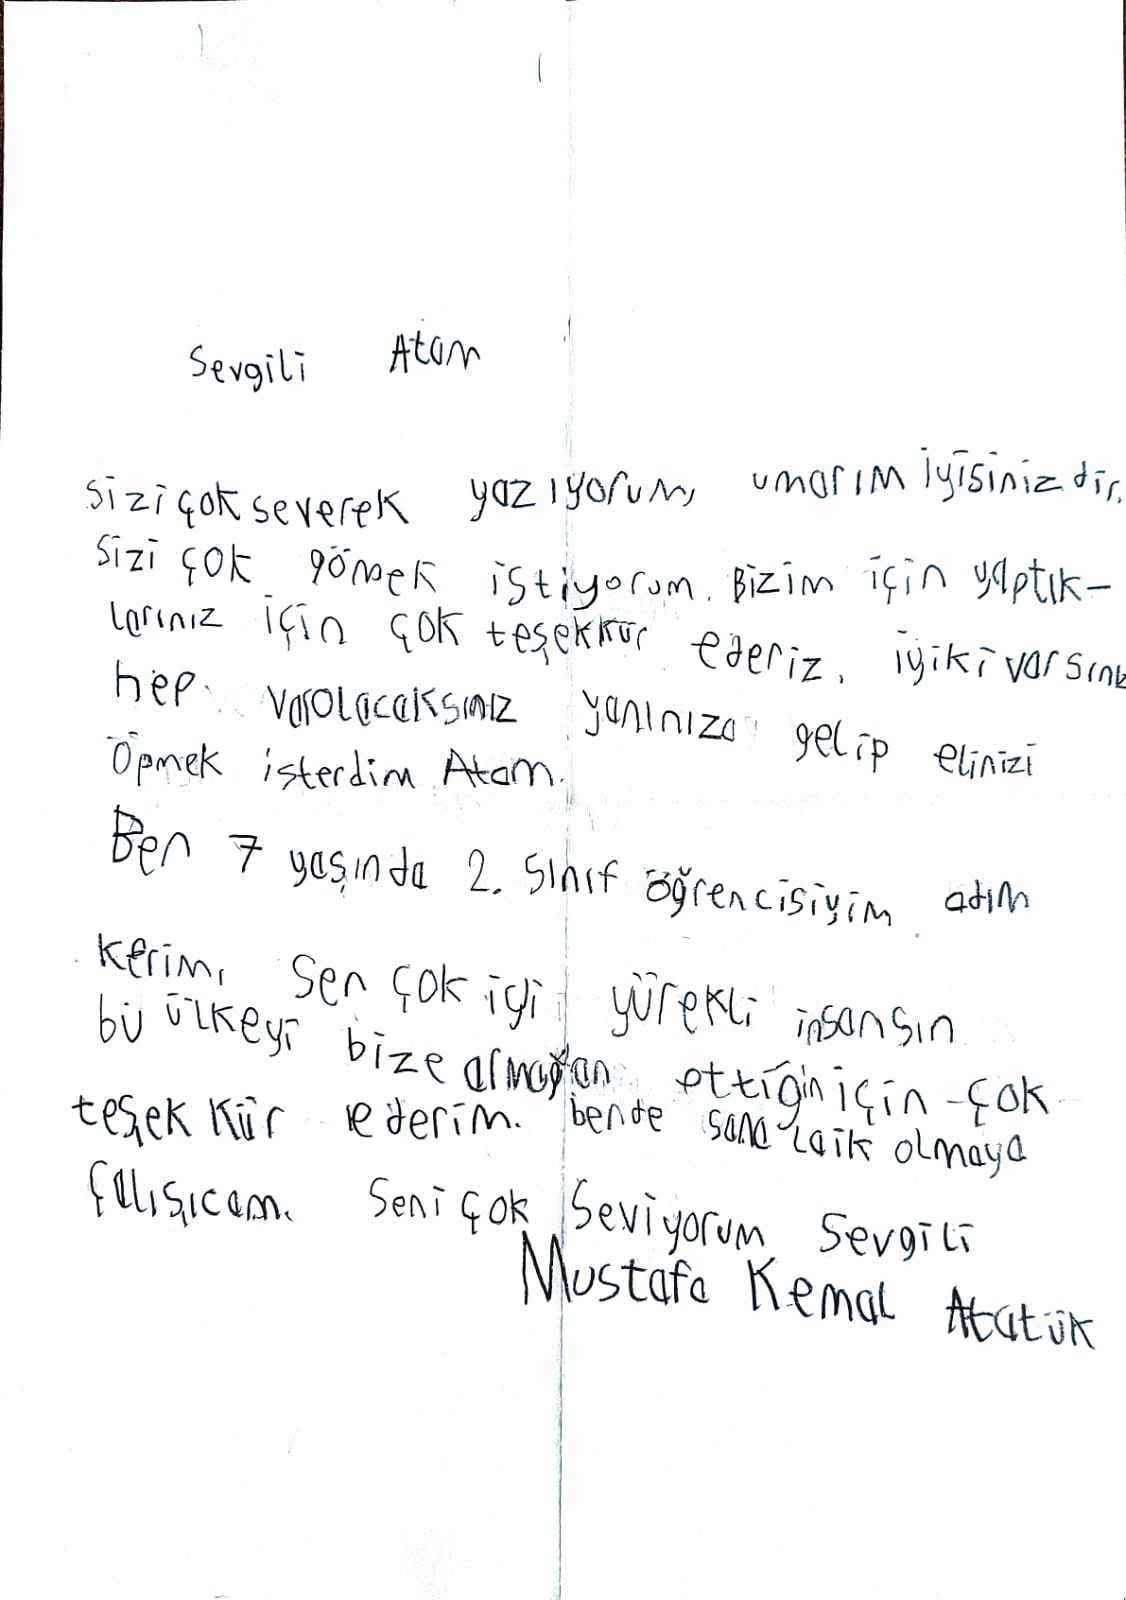 Sevgili Atam
Sizi çok severek yazıyorum, umarım iyisinizdir.
Sizi çok görmek istiyorum. Bizim için yaptık-
larınız için çok teşekkür ederiz. iyiki varsınız
hep varolacaksınız yanınıza gelip elinizi
Öpmek isterdim Atam.
Ben 7 yaşında 2. Sınıf öğrencisiyim adım
Kerim, Sen çok iyi yürekli insansın
bu ülkeyi bize armağan ettiğin için çok
teşekkür ederim. bende sana laik olmaya
çalışıcam. Seni çok Seviyorum Sevgili
Mustafa Kemal Atatük